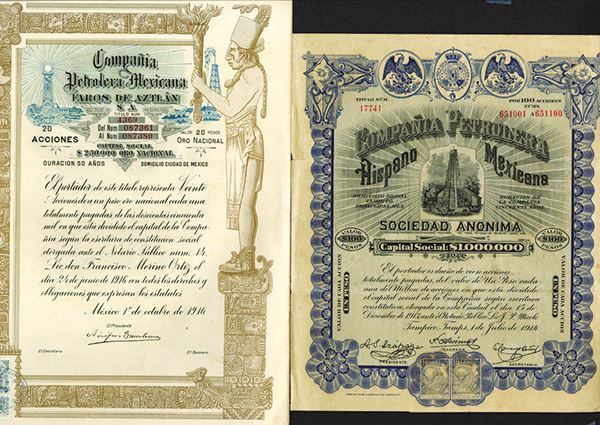 Compañia
Petrolera Mexicana
FAROS DE AZTLÁN
S. A.
TITULO NUM
4369
Del Num 087361
Al Num 087380
20
ACCIONES
VALOR 20 PESOS
ORO NACIONAL
CAPITAL SOCIAL
$ 250.000 ORO NACIONAL
DURACION 50 AÑOS
DOMICILIO CIUDAD DE MEXICO
El portador de este titulo representa Veinte
Acciones de a un peso oro nacional cada una
totalmente pagadas de las doscientas cincuenta
mil en que esta dividido el capital de la Compa-
ñia segun la escritura de constitución social
otorgada ante el Notario Público num. 14.
Lic. don Francisco Merino Ortiz, el dia
24 de junio de 1916 con todos los derechos y
obligaciones que expresan los estatutos
Mexico 1º de octubre de 1916
El Presidente
El Secretario
El Tesorero
TITULO NÚM.
17741
POR 100 ACCIONES
NÚMS.
651001 A 651100
COMPAÑIA PETROLERA
Hispano Mexicana
DOMICILIO SOCIAL
TAMPICO,
TAMAULIPAS, MEX.
DURACION DE
LA COMPAÑIA
CINCUENTA AÑOS.
SOCIEDAD ANONIMA
Capital Social: $1.000.000
VALOR
$100
PESOS
VALOR
$100
PESOS
VALOR DE CADA ACCION
UN PESO
VALOR DE CADA ACCION
UN PESO
El portador es dueño de cien acciones,
totalmente pagadas, del valor de Un Peso cada
una
capital social de la Compañia según escritura
constitutiva, otorgada en esta Ciudad el dia 15 de
Diciembre de 1913, ante el Notario Público Lic.
Tampico, Tamps., 1 de Julio de 1914
PRESIDENTE
TESORERO
SECRETARIO